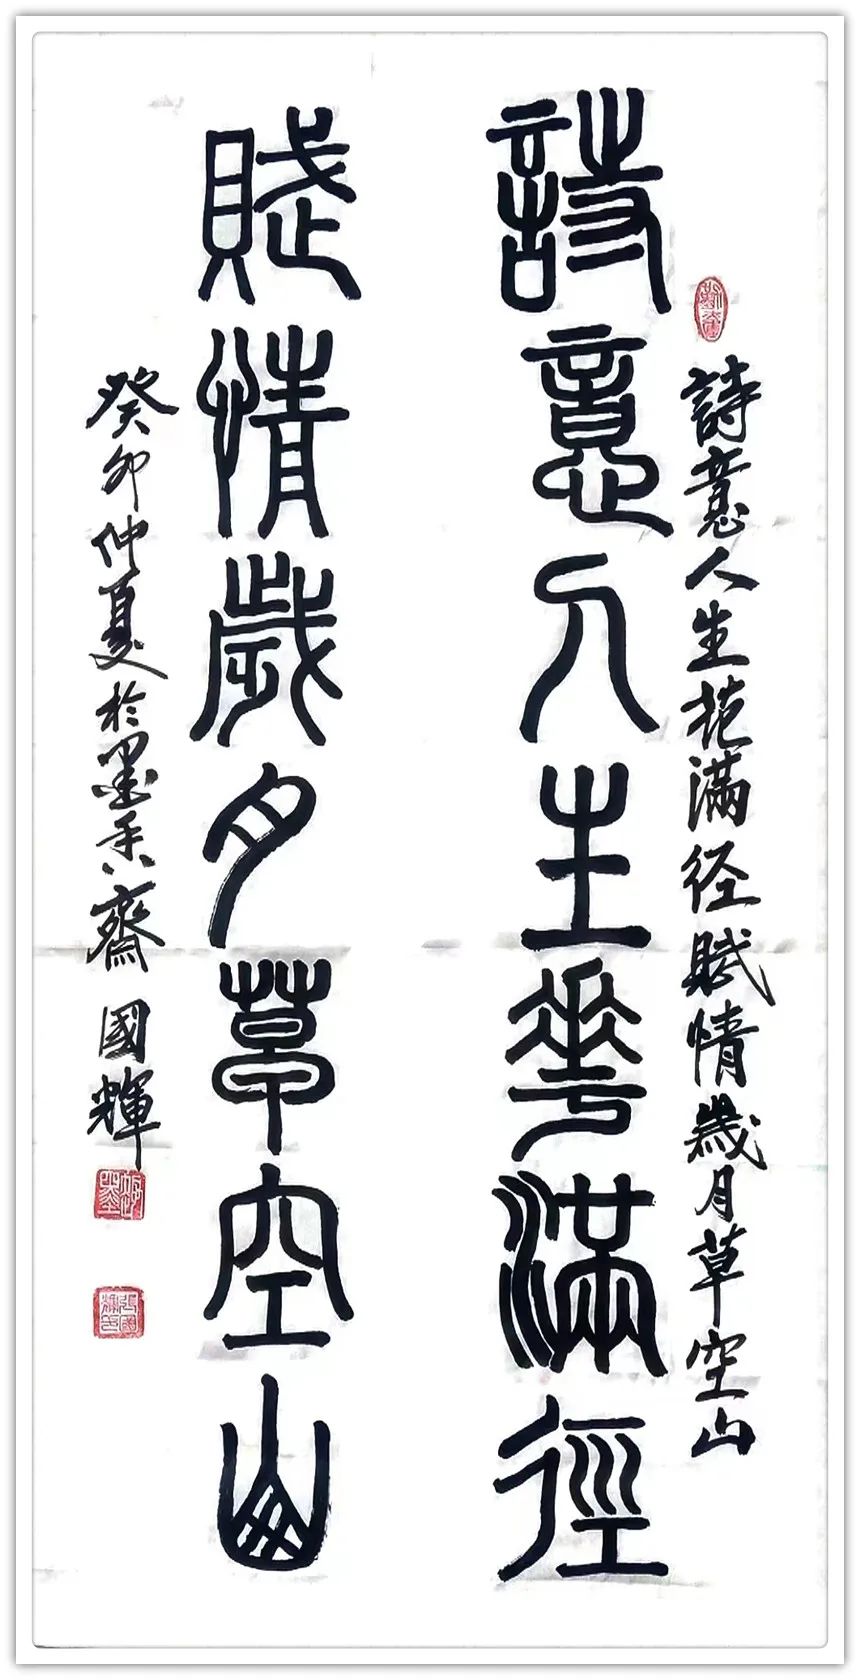 詩意人生華滿徑
賦情歲月草空山
詩意人生花滿径賦情歲月草空山
癸卯仲夏於墨香齋 國輝